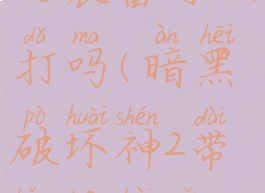 dǎ ma àn hēi
打吗(暗黑
pò huài shén dài
破坏神2带